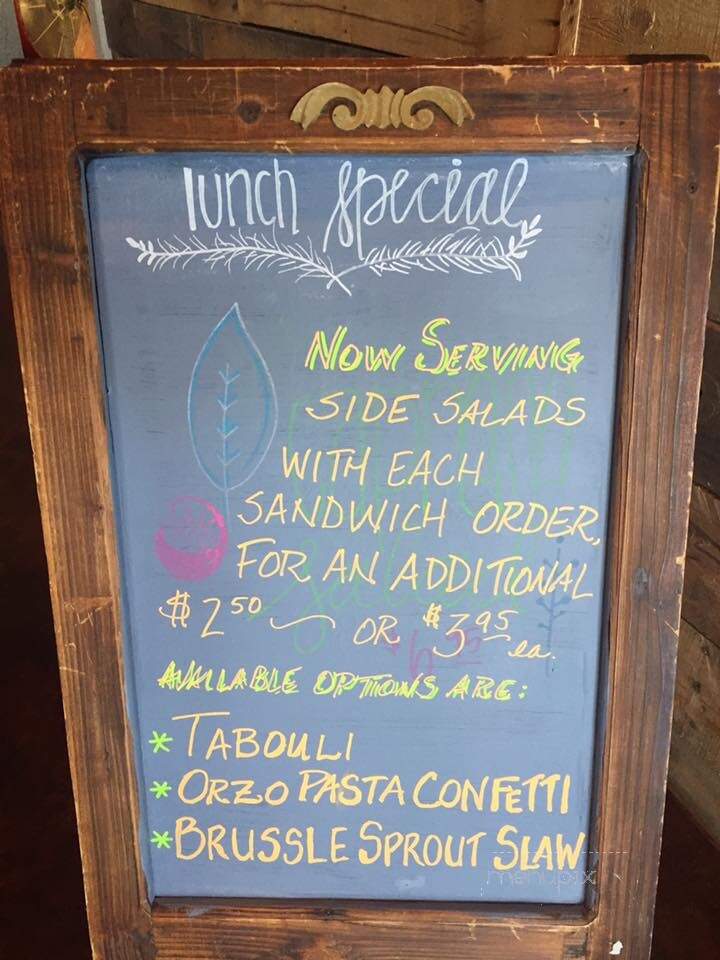 lunch special
Now Serving
SIDE SALADS
WITH EACH
SANDWICH ORDER,
FOR AN ADDITIONAL
$2.50 OR $3.95 ea.
AVAILABLE OPTIONS ARE:
* TABOULI
* ORZO PASTA CONFETTI
* BRUSSLE SPROUT SLAW
menupix